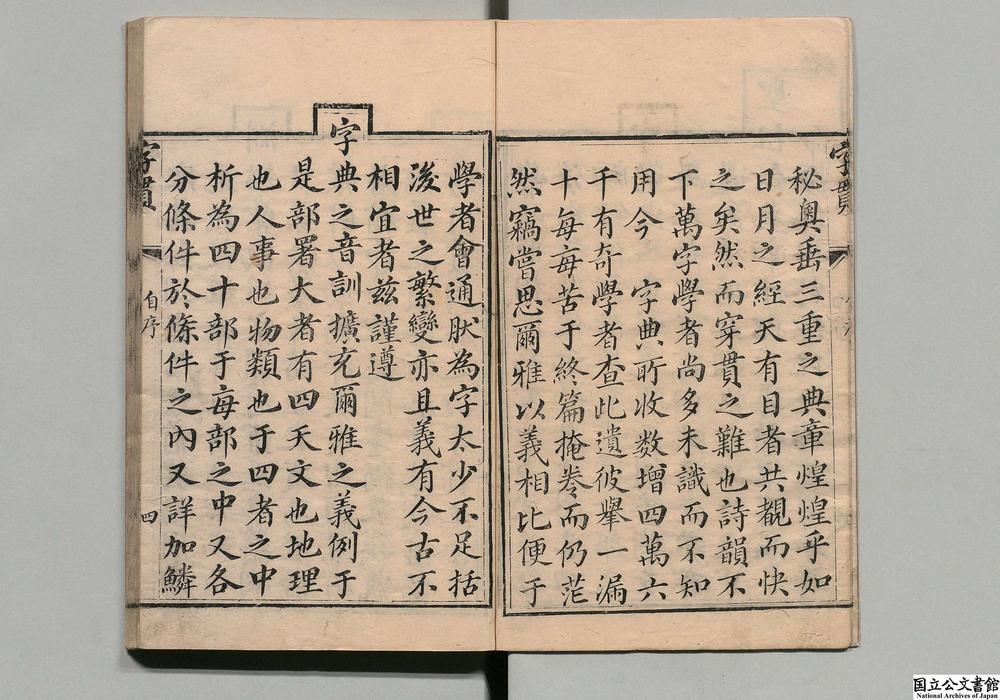 字貫
秘奧垂三重之典章煌煌乎如
日月之經天有目者共覩而快
之矣然而穿貫之難也詩韻不
下萬字學者尚多未識而不知
用今 字典所收数增四萬六
千有奇學者查此遺彼舉一漏
十每每苦于終篇掩卷而仍茫
然竊嘗思爾雅以義相比便于
學者會通肰為字太少不足括
浚世之繁變亦且義有今古不
相宜者兹謹遵
字典之音訓擴充爾雅之義例于
是部署大者有四天文也地理
也人事也物類也于四者之中
析為四十部于每部之中又各
分條件於條件之內又詳加鱗
字貫
自序
四
国立公文書館
National Archives of Japan